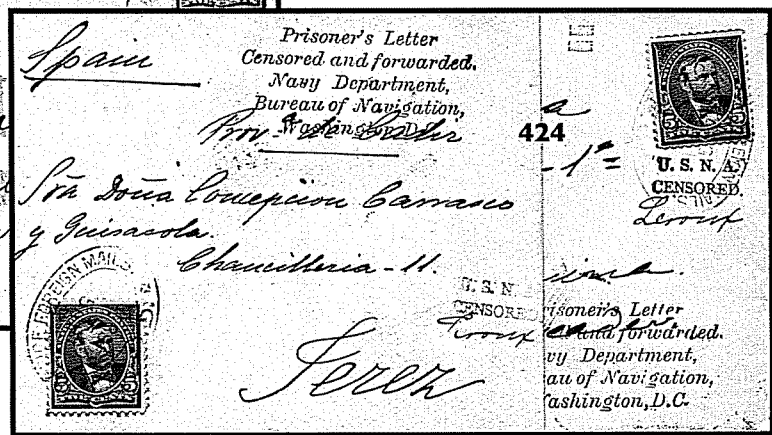 Spain
Prisoner's Letter
Censored and forwarded.
Navy Department,
Bureau of Navigation,
Washington D.C.
Prov de Cadiz
Sra Doña Concepcion Carrasco
y Guisasola.
Chancilleria - 11.
FOREIGN MAILS
U. S. N.
CENSORED
Leroux
Jerez
424
a
- 1ª =
U. S. N. A.
CENSORED.
Leroux
risoner's Letter
and forwarded.
vy Department,
au of Navigation,
ashington, D.C.